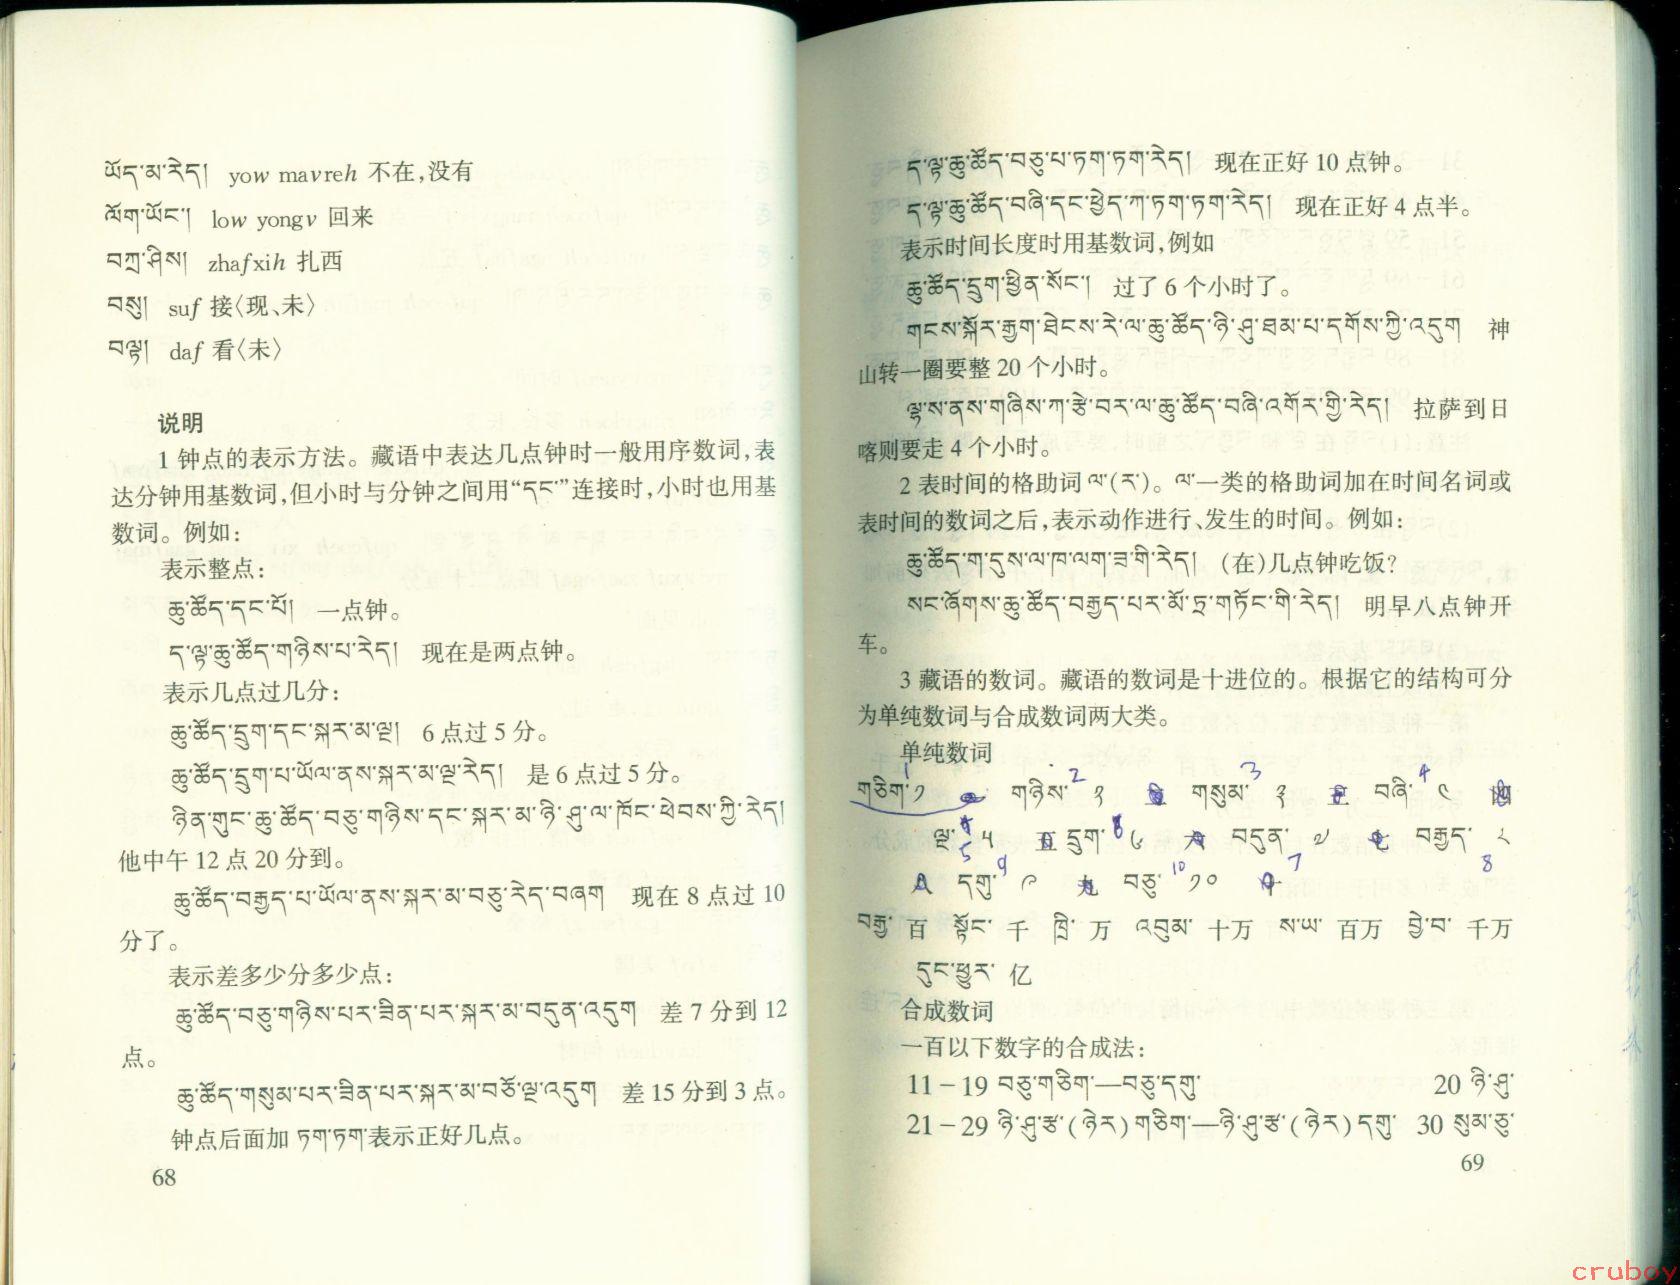 ཡོད་མ་རེད། yow mavreh 不在,没有
ལོག་ཡོང་། low yongv 回来
བཀྲ་ཤིས། zhafxih 扎西
བསུ། suf 接〈现、未〉
བལྟ། daf 看〈未〉
说明
1 钟点的表示方法。藏语中表达几点钟时一般用序数词,表
达分钟用基数词,但小时与分钟之间用“དང་”连接时,小时也用基
数词。例如:
表示整点:
ཆུ་ཚོད་དང་པོ། 一点钟。
ད་ལྟ་ཆུ་ཚོད་གཉིས་པ་རེད། 现在是两点钟。
表示几点过几分:
ཆུ་ཚོད་དྲུག་དང་སྐར་མ་ལྔ། 6 点过 5 分。
ཆུ་ཚོད་དྲུག་པ་ཡོལ་ནས་སྐར་མ་ལྔ་རེད། 是 6 点过 5 分。
ཉིན་གུང་ཆུ་ཚོད་བཅུ་གཉིས་དང་སྐར་མ་ཉི་ཤུ་ལ་ཁོང་ཕེབས་ཀྱི་རེད།
他中午 12 点 20 分到。
ཆུ་ཚོད་བརྒྱད་པ་ཡོལ་ནས་སྐར་མ་བཅུ་རེད་བཞག 现在 8 点过 10
分了。
表示差多少分多少点:
ཆུ་ཚོད་བཅུ་གཉིས་པར་ཟིན་པར་སྐར་མ་བདུན་འདུག 差 7 分到 12
点。
ཆུ་ཚོད་གསུམ་པར་ཟིན་པར་སྐར་མ་བཅོ་ལྔ་འདུག 差 15 分到 3 点。
钟点后面加 ཏག་ཏག་表示正好几点。
68
ད་ལྟ་ཆུ་ཚོད་བཅུ་པ་ཏག་ཏག་རེད། 现在正好 10 点钟。
ད་ལྟ་ཆུ་ཚོད་བཞི་དང་ཕྱེད་ཀ་ཏག་ཏག་རེད། 现在正好 4 点半。
表示时间长度时用基数词,例如
ཆུ་ཚོད་དྲུག་ཕྱིན་སོང་། 过了 6 个小时了。
གངས་སྐོར་རྒྱག་ཐེངས་རེ་ལ་ཆུ་ཚོད་ཉི་ཤུ་ཐམ་པ་དགོས་ཀྱི་འདུག 神
山转一圈要整 20 个小时。
ལྷ་ས་ནས་གཞིས་ཀ་རྩེ་བར་ལ་ཆུ་ཚོད་བཞི་འགོར་གྱི་རེད། 拉萨到日
喀则要走 4 个小时。
2 表时间的格助词 ལ་(ར་)。ལ་一类的格助词加在时间名词或
表时间的数词之后,表示动作进行、发生的时间。例如:
ཆུ་ཚོད་ག་དུས་ལ་ཁ་ལག་ཟ་གི་རེད། (在)几点钟吃饭?
སང་ཞོགས་ཆུ་ཚོད་བརྒྱད་པར་མོ་ཊ་གཏོང་གི་རེད། 明早八点钟开
车。
3 藏语的数词。藏语的数词是十进位的。根据它的结构可分
为单纯数词与合成数词两大类。
单纯数词
1 2 3 4
གཅིག་ ༡ གཉིས་ ༢ གསུམ་ ༣ བཞི་ ༤ 四
ལྔ་ ༥ 五 དྲུག་ ༦ 六 བདུན་ ༧ 七 བརྒྱད་ ༨
5 9 10 7 8
八 དགུ་ ༩ 九 བཅུ་ ༡༠ 十
བརྒྱ་ 百 སྟོང་ 千 ཁྲི་ 万 འབུམ་ 十万 ས་ཡ་ 百万 བྱེ་བ་ 千万
དུང་ཕྱུར་ 亿
合成数词
一百以下数字的合成法:
11-19 བཅུ་གཅིག་—བཅུ་དགུ་ 20 ཉི་ཤུ་
21-29 ཉི་ཤུ་རྩ་(ཉེར)གཅིག་—ཉི་ཤུ་རྩ་(ཉེར)དགུ་ 30 སུམ་ཅུ་
69
cruboy